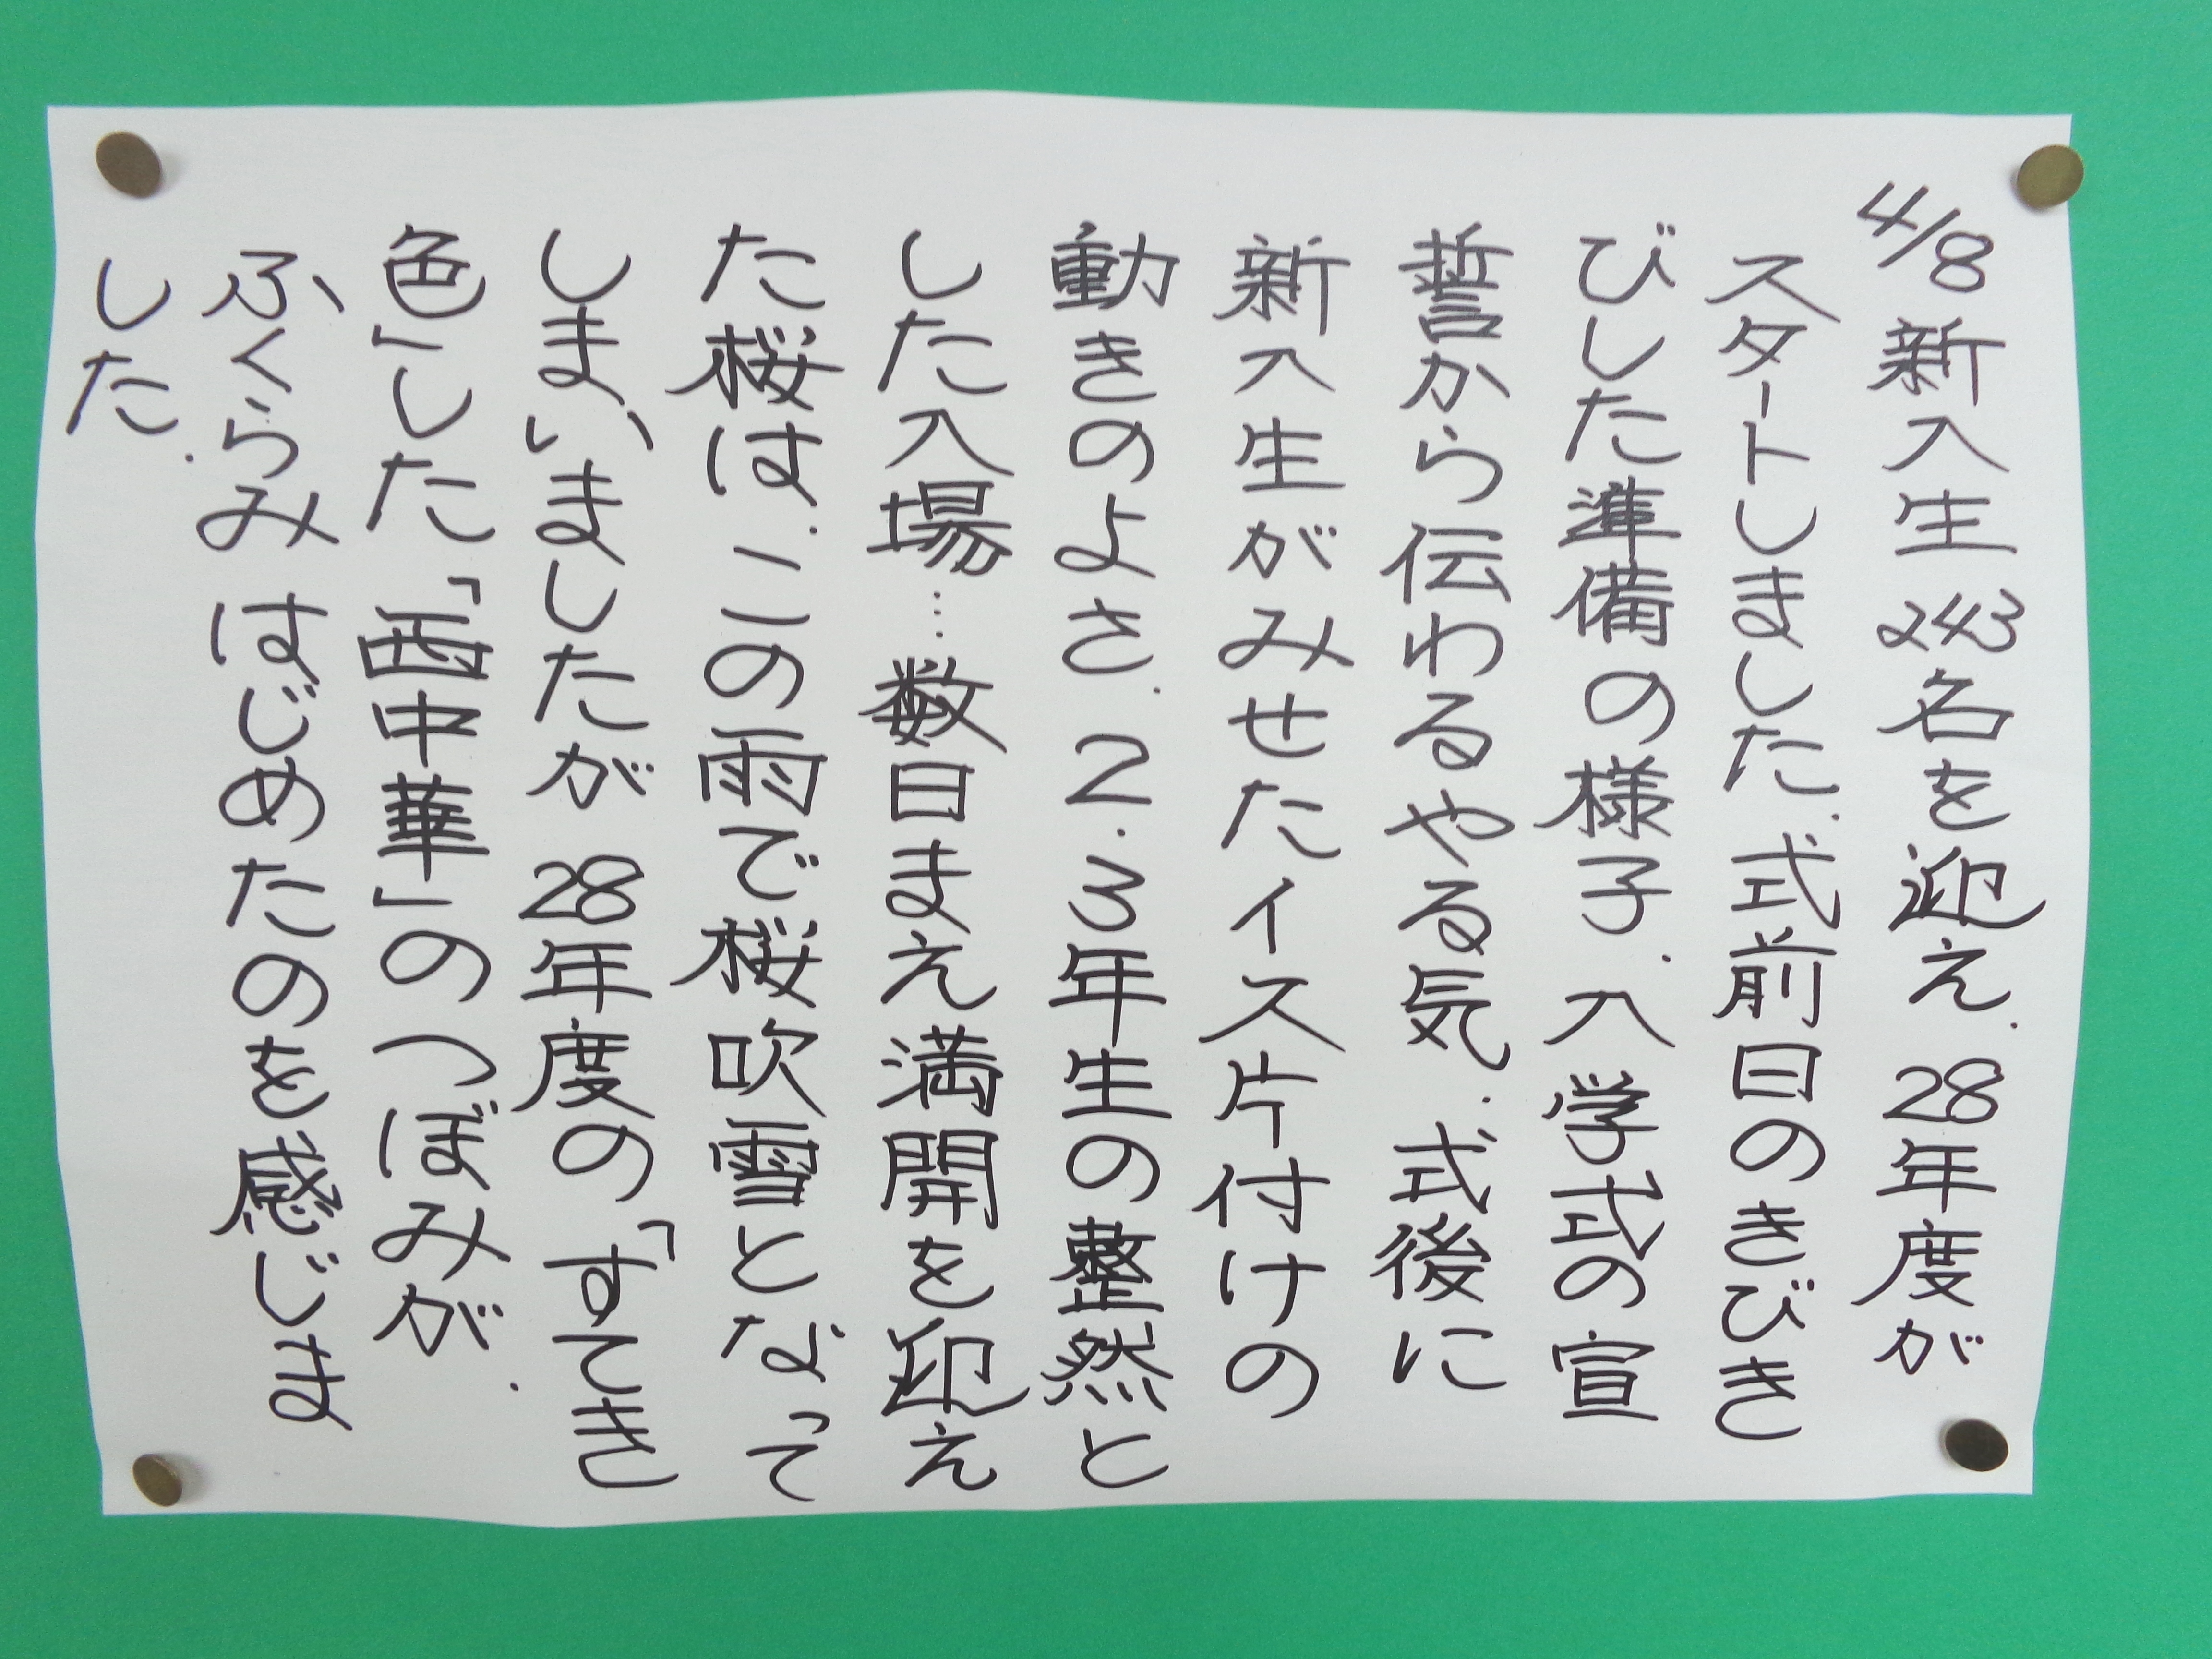 4/8 新入生 243名を迎え、28年度が
スタートしました。式前日のきびき
びした準備の様子、入学式の宣
誓から伝わるやる気、式後に
新入生がみせたイス片付けの
動きのよさ、2・3年生の整然と
した入場…数日まえ満開を迎え
た桜は、この雨で桜吹雪となって
しまいましたが 28年度の「すてき
色」した「西中華」のつぼみが、
ふくらみはじめたのを感じま
した。